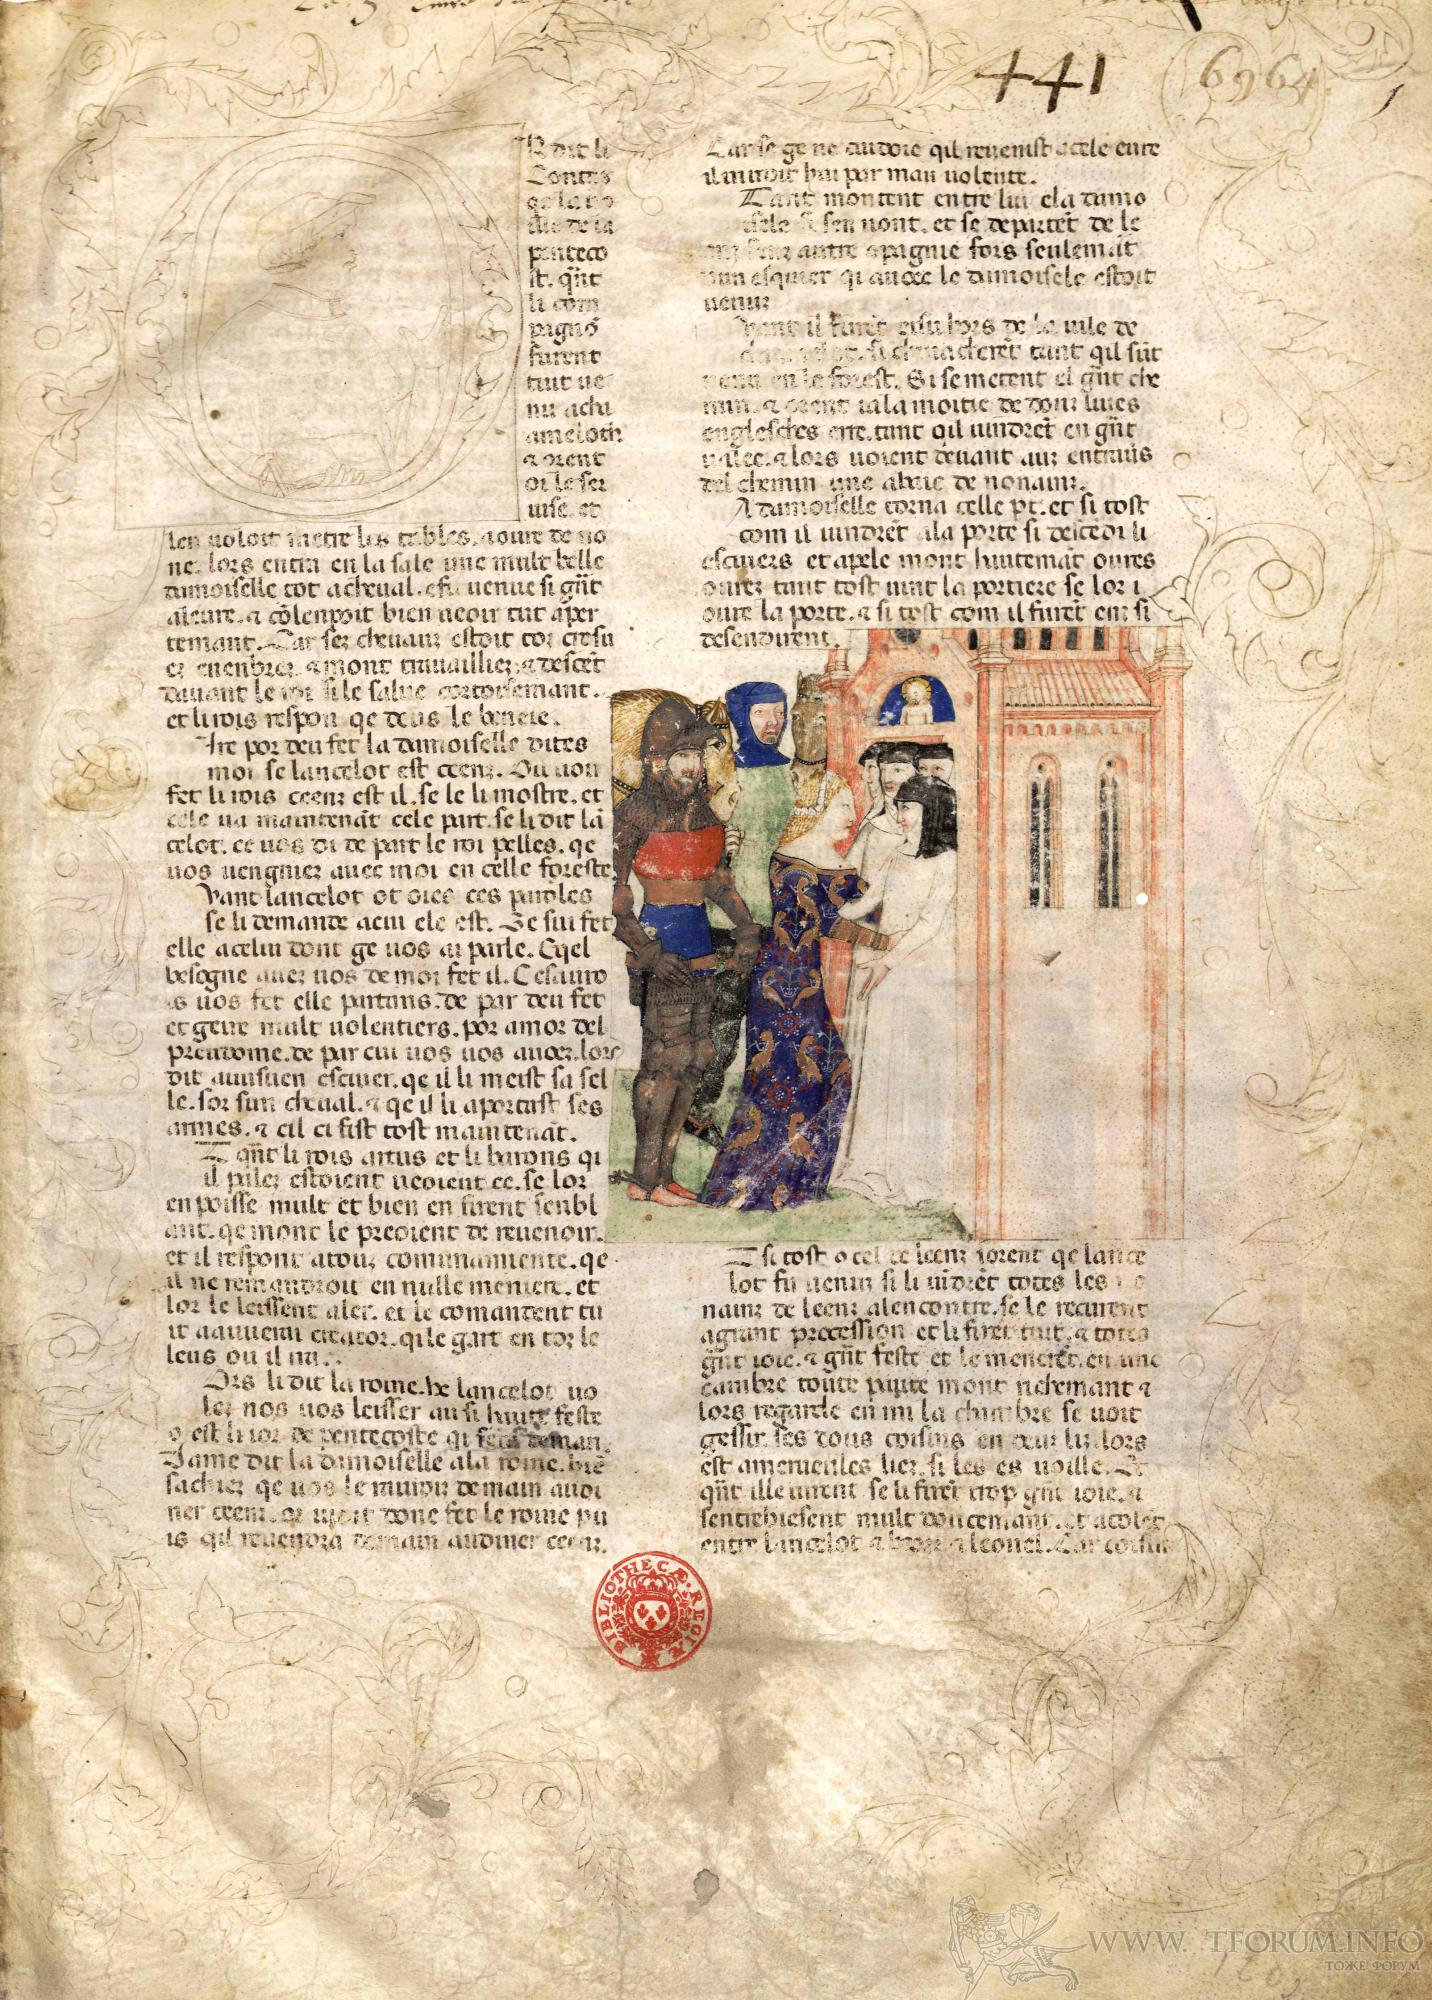 441
6964
R dit li
Contes
penteco
st. qñt
li com
pagnõ
furent
tuit ue
nu acha
ameloth
& orent
oi le ser
uise. et
len uoloit metre les tables. a oure de no
ne. lors entra en la sale une mult belle
damoiselle tot a cheual. e fu uenue si gñt
aleure. & cõ len poit bien ueoir tut aper
temant. Car ses cheuaux estoit toz
dauant le roi si le salue cortoisemant.
et li rois respon qe deus le beneie.
Ire por deu fet la damoiselle dites
moi se lancelot est ceenz. Oil uoir
fet li rois ceenz est il. se le li mostre. et
cele ua maintenãt cele part. se li dit lã
celot. ce uos di de part le roi pelles. qe
uos uengniez auec moi en celle foreste.
Vant lancelot ot oies ces paroles
se li demande a cui ele est. Ge sui fet
elle a celui dont ge uos ai parle. E qel
besogne auez uos de moi fet il. Ce sauro
is uos fet elle partans. de par deu fet
et ge ire mult uolentiers. por amor del
preudome. de par cui uos uos auoez. lors
dit a un suen escuier. qe il li meist sa sel
le. sor sun cheual. & qe il li aportast ses
armes. & cil ci fist tost maintenãt.
qñt li rois artus et li barons qi
il palez estoient ueoient ce. se lor
en poisse mult et bien en firent senbl
ant. qe mont le preoient de reuenoir.
et il respont a touz comunaumente. qe
il ne remandroit en nulle meniere. et
lor le leissent aler. et le comandent tu
it a creator. qi le gart en toz le
leus ou il
Ors li dit la roine. he lancelot uo
lez nos uos leisser au si haute feste
o est li ior de pentecoste qi sera deman.
Dame dit la damoiselle a la roine. biẽ
sachiez qe uos le demain au di
ner ceenz. or done fet le roine pu
is qil reuendra demain au diner ceenz.
Car se ge ne cuidoie qil reuenist a cele eure
il ni iroit hui par mau uolente.
Tant montent entre lui e la damo
sele si sen uont. et se departẽt de le
anz senz autre cpagnie fors seulemãt
un esquier qi auoec le damoisele estoit
uenuz
Vant il furẽt eisu hors de la uile de
si cheuacherẽt tant qil sũt
uenu en le forest. Si se metent el gñt che
min. & orent ia la moitie de dous liues
englesches erre. tant qil uindrẽt en gñt
ualee. & lors uoient deuant aux entraus
del chemin une abaie de nonainz.
A damoiselle torna celle pt. et si tost
com il uindrẽt a la porte si descẽdi li
escuiers et apele mont hautemãt oures
ourez tant tost uint la portiere se lor i
oure la porte. & si tost com il furẽt enz si
desendirent.
si tost o cel de leenz sorent qe lance
lot fu uenuz si li uidrẽt totes les no
nainz de leenz alencontre. se le recurent
a grant procession et li firẽt tuit. & totes
gñt ioie. & gñt feste et le menerẽt. en une
cambre toute painte mont richemant &
lors regarde en mi la chambre se uoit
gessir ses dous coisins en deux liz. lors
est amerueiles liez. si les es uoille. Et
qñt ille uirent se li firẽt trop gñt ioie. &
sentrebiesent mult doucemant. et acoler
entre lancelot & boorz & leonel. Car coisin
BIBLIOTHECÆ REGIÆ
WWW. TFORUM.INFO
ТОЖЕ ФОРУМ